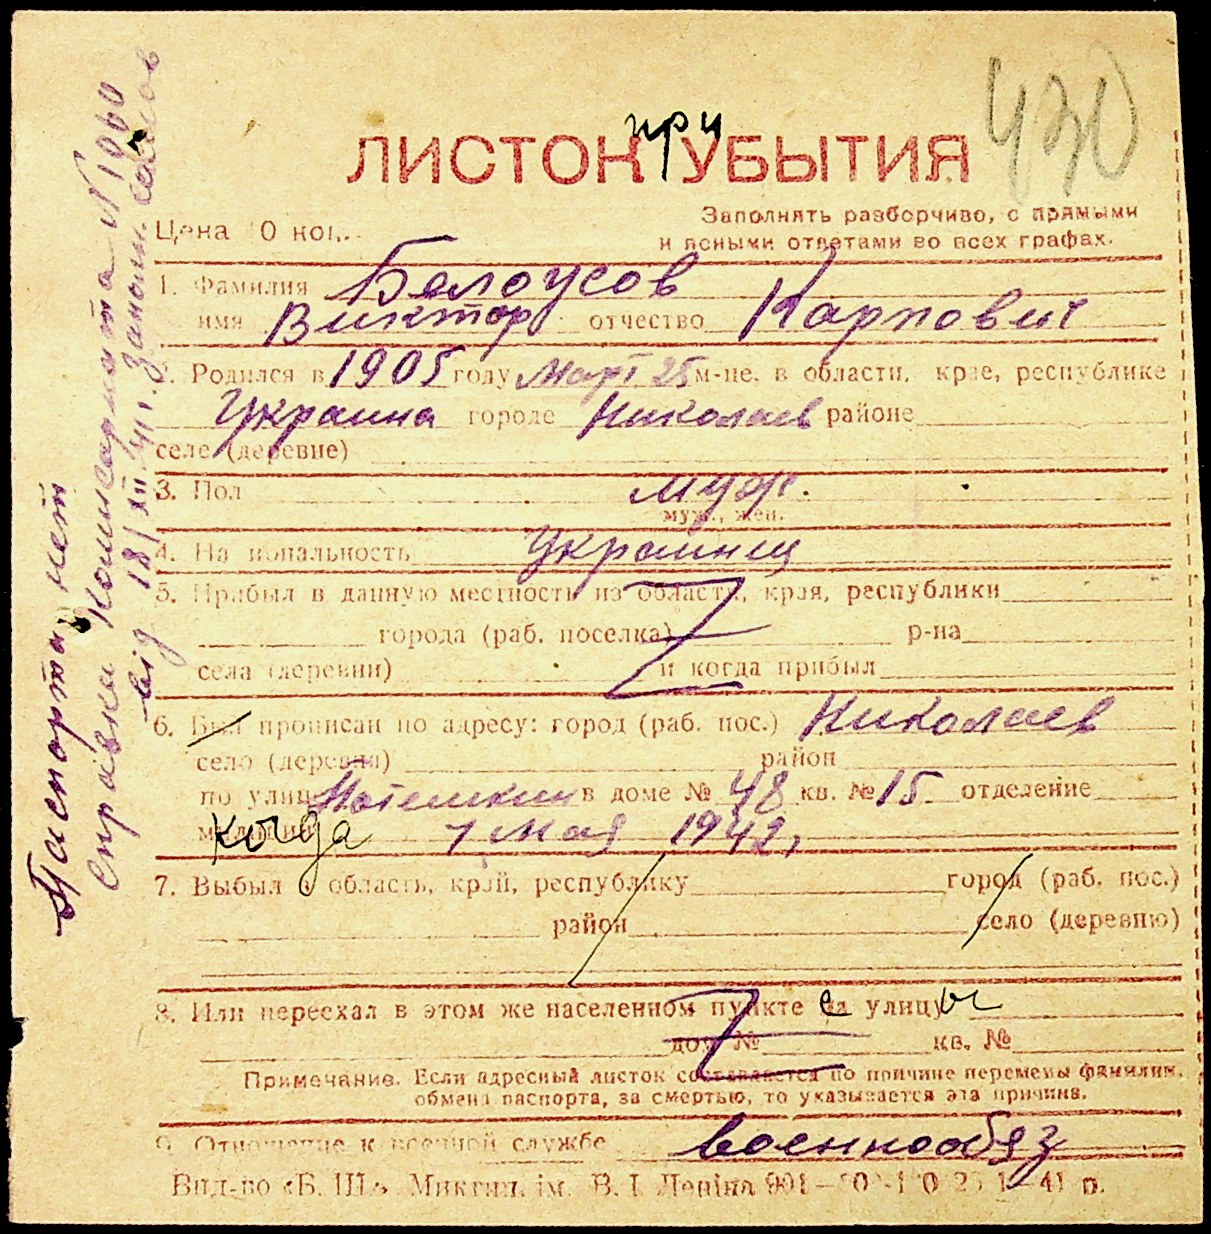 430
при
ЛИСТОК УБЫТИЯ
Заполнять разборчиво, с прямыми
Цена 10 коп.
и ясными ответами во всех графах.
1. Фамилия Белоусов
имя Виктор отчество Карпович
2. Родился в 1905 году Март 25 м-це. в области, крае, республике
Украина городе Николаев районе
селе (деревне)
3. Пол муж.
муж., жен.
4. Национальность Украинец
5. Прибыл в данную местность из области, края, республики
города (раб. поселка) р-на
села (деревни) и когда прибыл
6. Был прописан по адресу: город (раб. пос.) Николаев
село (деревня) район
по улице Потемкин в доме № 48 кв. № 15 отделение
милиции когда 1 мая 1942,
7. Выбыл в область, край, республику город (раб. пос.)
район село (деревню)
8. Или переехал в этом же населенном пункте с на улицу ы
дом № кв. №
Примечание. Если адресный листок составляется по причине перемены фамилии,
обмена паспорта, за смертью, то указывается эта причина.
9. Отношение к военной службе военнообяз
Вид-во «Б. Ш.» Миктип. ім. В. І. Леніна 41 р.
Паспорта нет
справки Комисариата N 1060
від 18/XII 41 г.